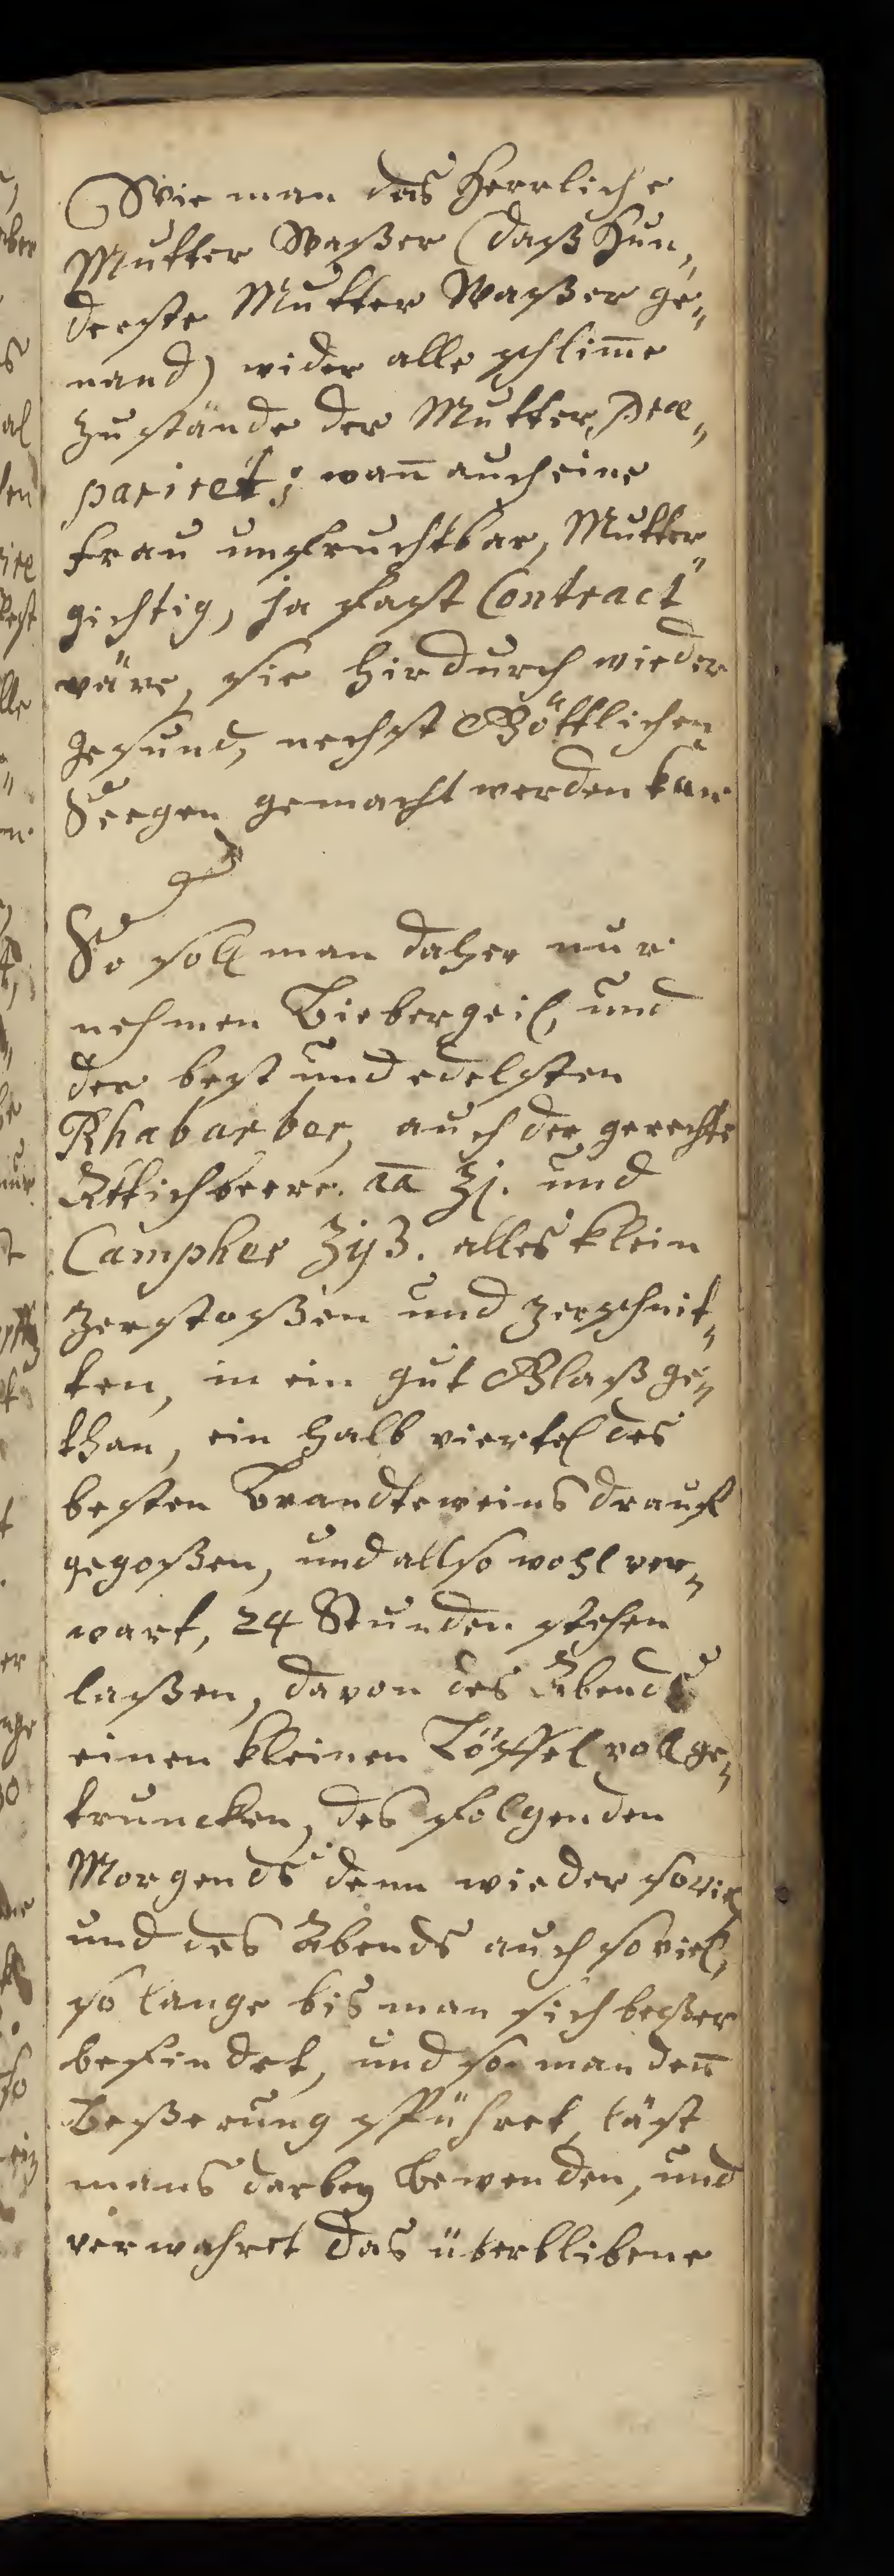 Wie man das Herrliche
Mutter Waßer (daß Hun„
derste Mutter Waßer ge„
nand) wider alle schlim̄e
zustände der Mutter, præ„
pariret; wan̄ auch eine
Frau unfruchtbar, Mutter„
gichtig, ja fast Contract
wäre, sie hirdurch wieder
gesund, nechst Göttlichen
Seegen gemacht werden kan
So soll man daher nur
nehmen Biebergeil, und
der best und edelsten
Rhabarber, auch der gerechte
Attichbeere. āā ʒj. und
Campher ʒijß. alles klein
zerstoßen und zerschnit„
ten, in ein gut Glaß ge„
than, ein halb viertel des
besten Brandteweins drauf
gegoßen, und allso wohl ver„
wart, 24 Stunden stehen
laßen, davon des Abends
einen kleinen Löffel voll ge„
truncken, des folgenden
Morgends denn wieder soviel
und des Abends auch soviel,
so lange bis man sich beßer
befindet, und so man den̄
Beßerung spühret, läst
mans darbey bewenden, und
verwahret das überblibene